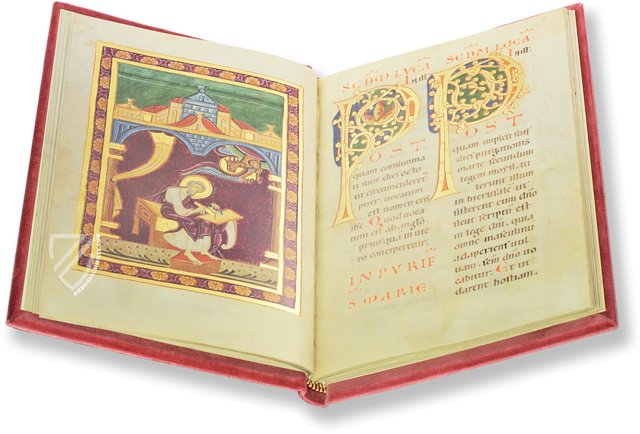 SCDM LVCA
POST
quam consumma
ti sunt dies octo
ut circumcideret
puer. uocatum
est nomen eius
Quod uocatum
est ab angelo
priusquam in ute
ro conciperetur
IN PVRIF
S MARIE
SCDM LVCA
POST
quam impleti sunt
dies purgationis
marie secundum
legem moysi. tu
lerunt illum
in hierusale ut
sisterent eum dno
sicut scriptu est
in lege dni. quia
omne masculinu
adaperiens uul
uam. scm dno uo
cabitur. Et ut
darent hostiam.